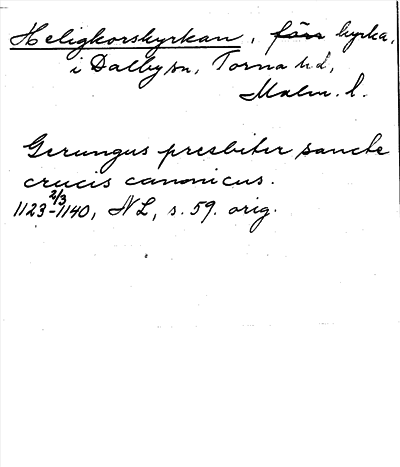 Heligkorskyrkan, förs kyrka,
i Dalby sn, Torna hd,
Malm. l.
Gerungus presbiter sancte
crucis canonicus.
2/3
1123-1140, NL, s. 59. orig.